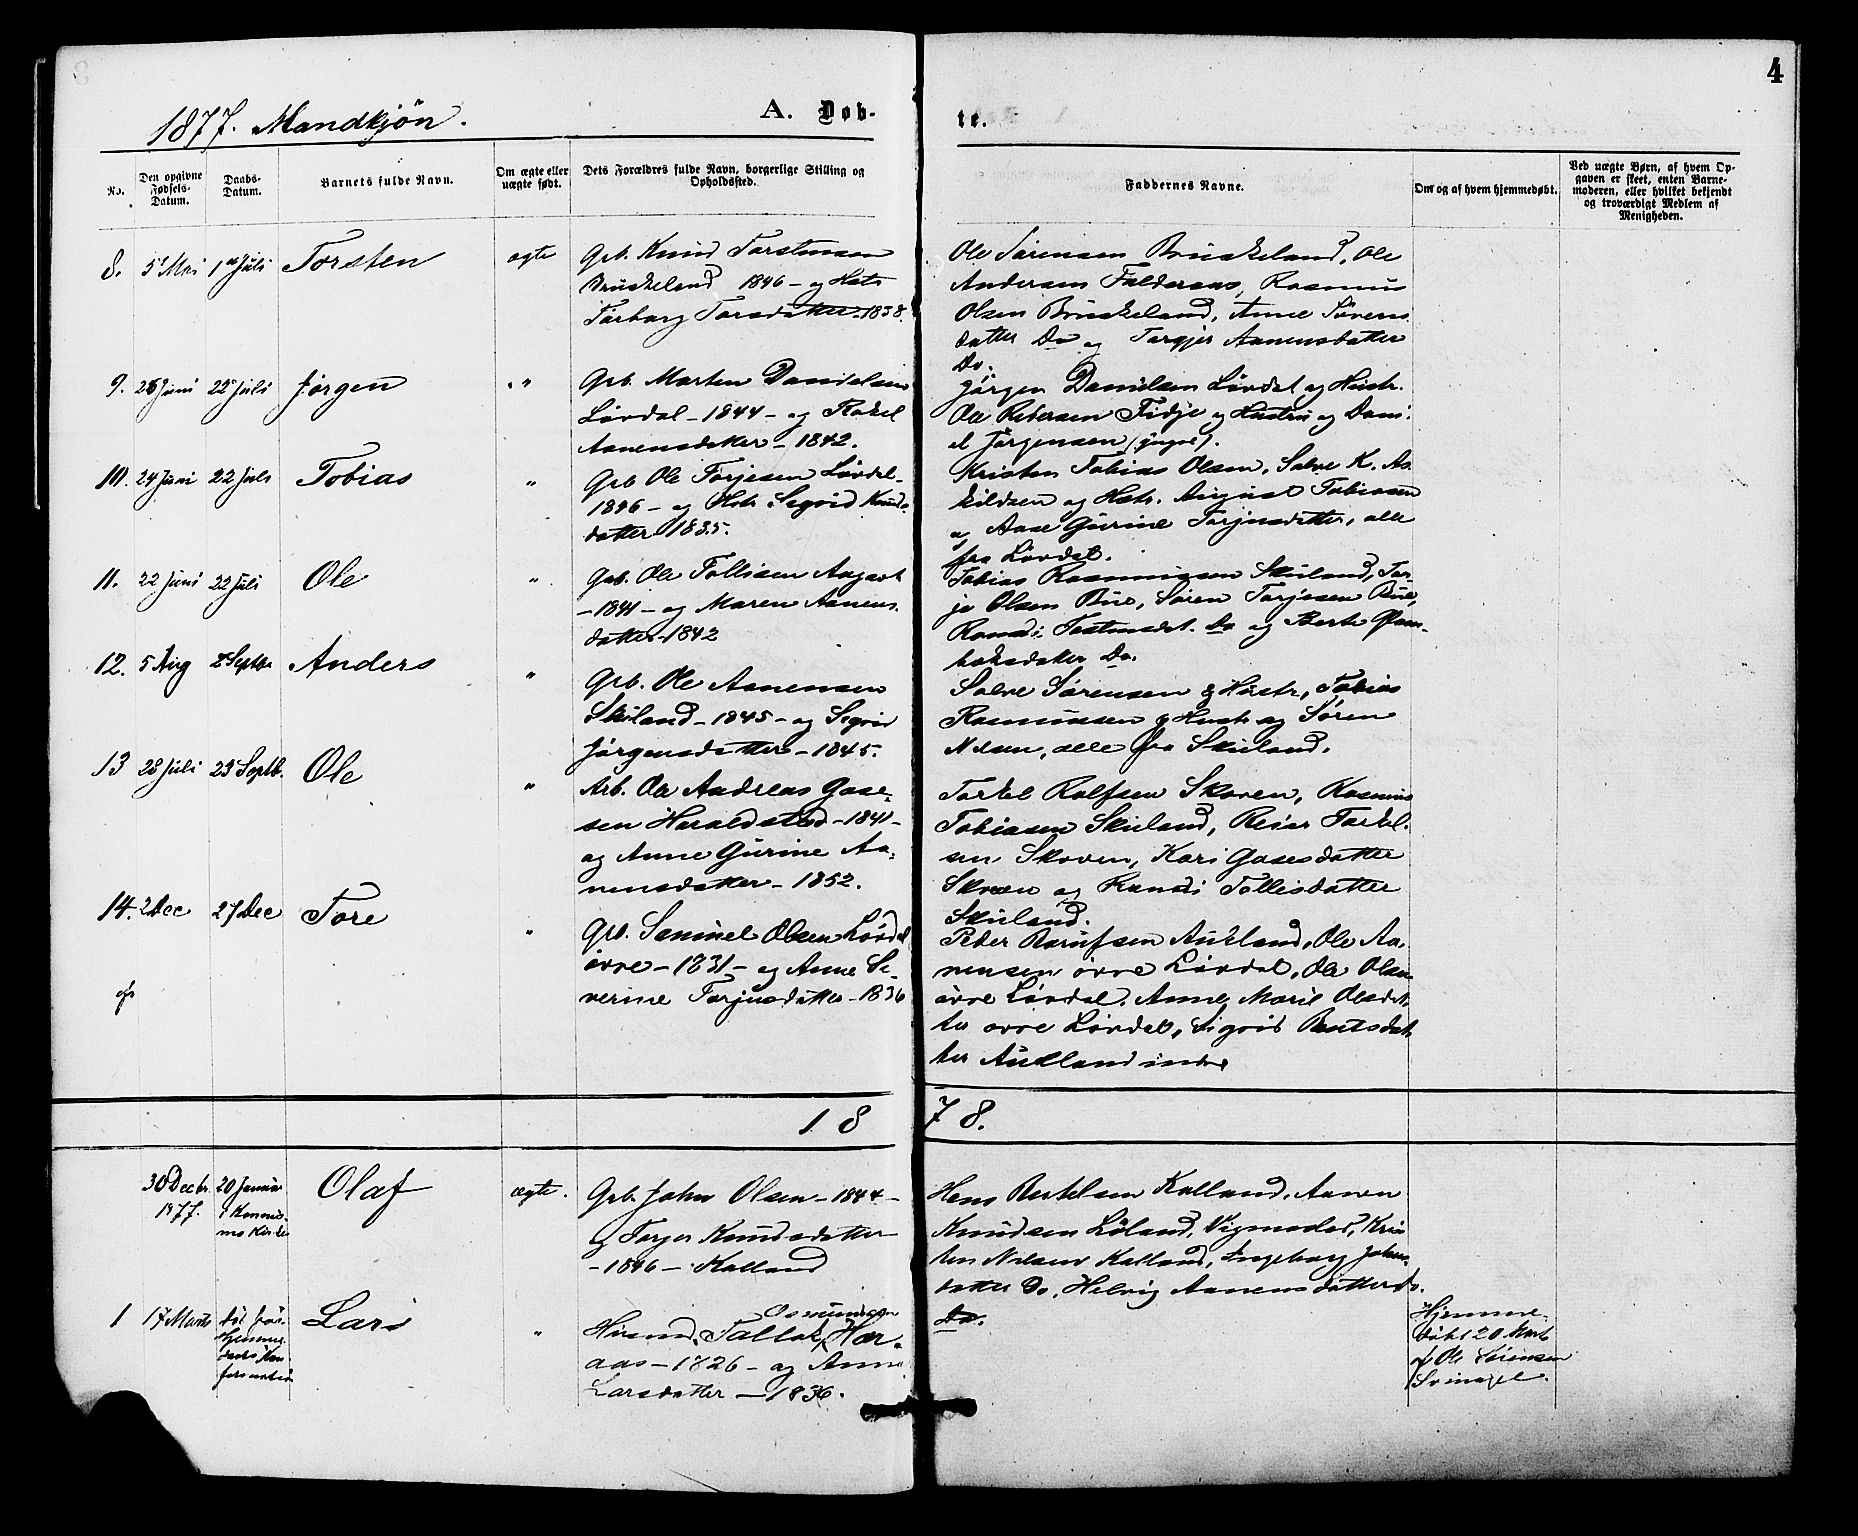 4
1877. Mandkjön.
A. Døb-
te.
No.
Den opgivne Fødsels-Datum.
Daabs-Datum.
Barnets fulde Navn.
Om ægte eller uægte født.
Dets Forældres fulde Navn, borgerlige Stilling og Opholdssted.
Faddernes Navne.
Om og af hvem hjemmedøbt.
Ved uægte Børn, af hvem Op-
gaven er skeet, enten Barne-
moderen, eller hvilket bekjendt
og troværdigt Medlem af
Menigheden.
8. 5 Mai 1 Juli Torsten ægte Grb. Knud Torstensen
Bruskeland 1846 - og Hstr
Torborg Torsdatter 1838.
Ole Sørensen Bruskeland, Ole
Andersen Falderaas, Rasmus
Olsen Bruskeland, Anne Sørens
datter Do og Torgjer Aanensdatter
Do.
9. 26 Juni 22 Juli Jørgen " Grb. Morten Danielsen
Løvdal - 1844 - og Rakel
Aanensdatter - 1842.
Jørgen Danielsen Løvdal og Hustr.
Ole Petersen Fidje og Hustru og Dani-
el Jørgensen (yngre).
10. 24 Juni 22 Juli Tobias " Grb Ole Torjesen Løvdal-
1846 - og Hstr. Segrid Knuds-
datter 1835.
Kristen Tobias Olsen, Salve K. As
kildsen og Hstr. August Tobiasen
og Aase Gurine Torjusdatter, alle
fra Løvdal.
11. 22 Juni 22 Juli Ole " Grb. Ole Tollisen
- 1841 - og Maren Aanens
datter - 1842
Tobias Rasmussen Skuland, Tor-
je Olsen Bue, Søren Torjesen Bue,
Do og Berte
Do.
12. 5 Aug 2 Septbr Anders " Grb. Ole Aanensen
Skuland - 1845 - og Segrid
Jørgensdatter - 1845.
Salve Sørensen & Hustr, Tobias
Rasmussen & Hustr og Søren
Nilsen, alle fra Skuland.
13 28 Juli 23 Septb. Ole " Arb. Ole Andreas Gose-
sen Haraldstad - 1841 -
og Anne Gurine Aa-
nensdatter - 1852.
Torkel Rolfsen Skoven, Rasmus
Tobiasen Skuland, Reiar Torkel-
sen Skoven, Kari Gosesdatter
Skoven og Randi Tollisdatter
Skuland.
14. 2 Dec 27 Dec Tore " Grb. Samuel Olsen Løvdal
øvre - 1831 - og Anne Se-
verine Torjusdatter - 1836
Peder Berulfsen Aukland, Ole Aa-
nensen øvre Løvdal, Ole Olsen
øvre Løvdal, Anne Marie Olsdat-
ter øvre Løvdal, Sigrid Bentsdat
ter Aukland indre
18
78.
30 Decbr 1877. 20 Januar Olaf ægte. Grb. John Olsen - 1844 -
og Torjer Knudsdatter
- 1846 - Kalland
Hans Bertelsen Kalland, Aanen
Knudsen Løland, Vigmostad, Kris
ten Nilsen Kalland, Ingeborg Johns
datter Do, Helvig Aanensdatter
Do.
1 17 Marts død før Hjemme-
daabs Kon-
firmation Lars " Husmd. Tallak Osmundsen Hør-
aas - 1826 - og Anne
Larsdatter - 1836.
Hjemme-
døbt 20 Marts
af Ole Sørensen
Svinagel.